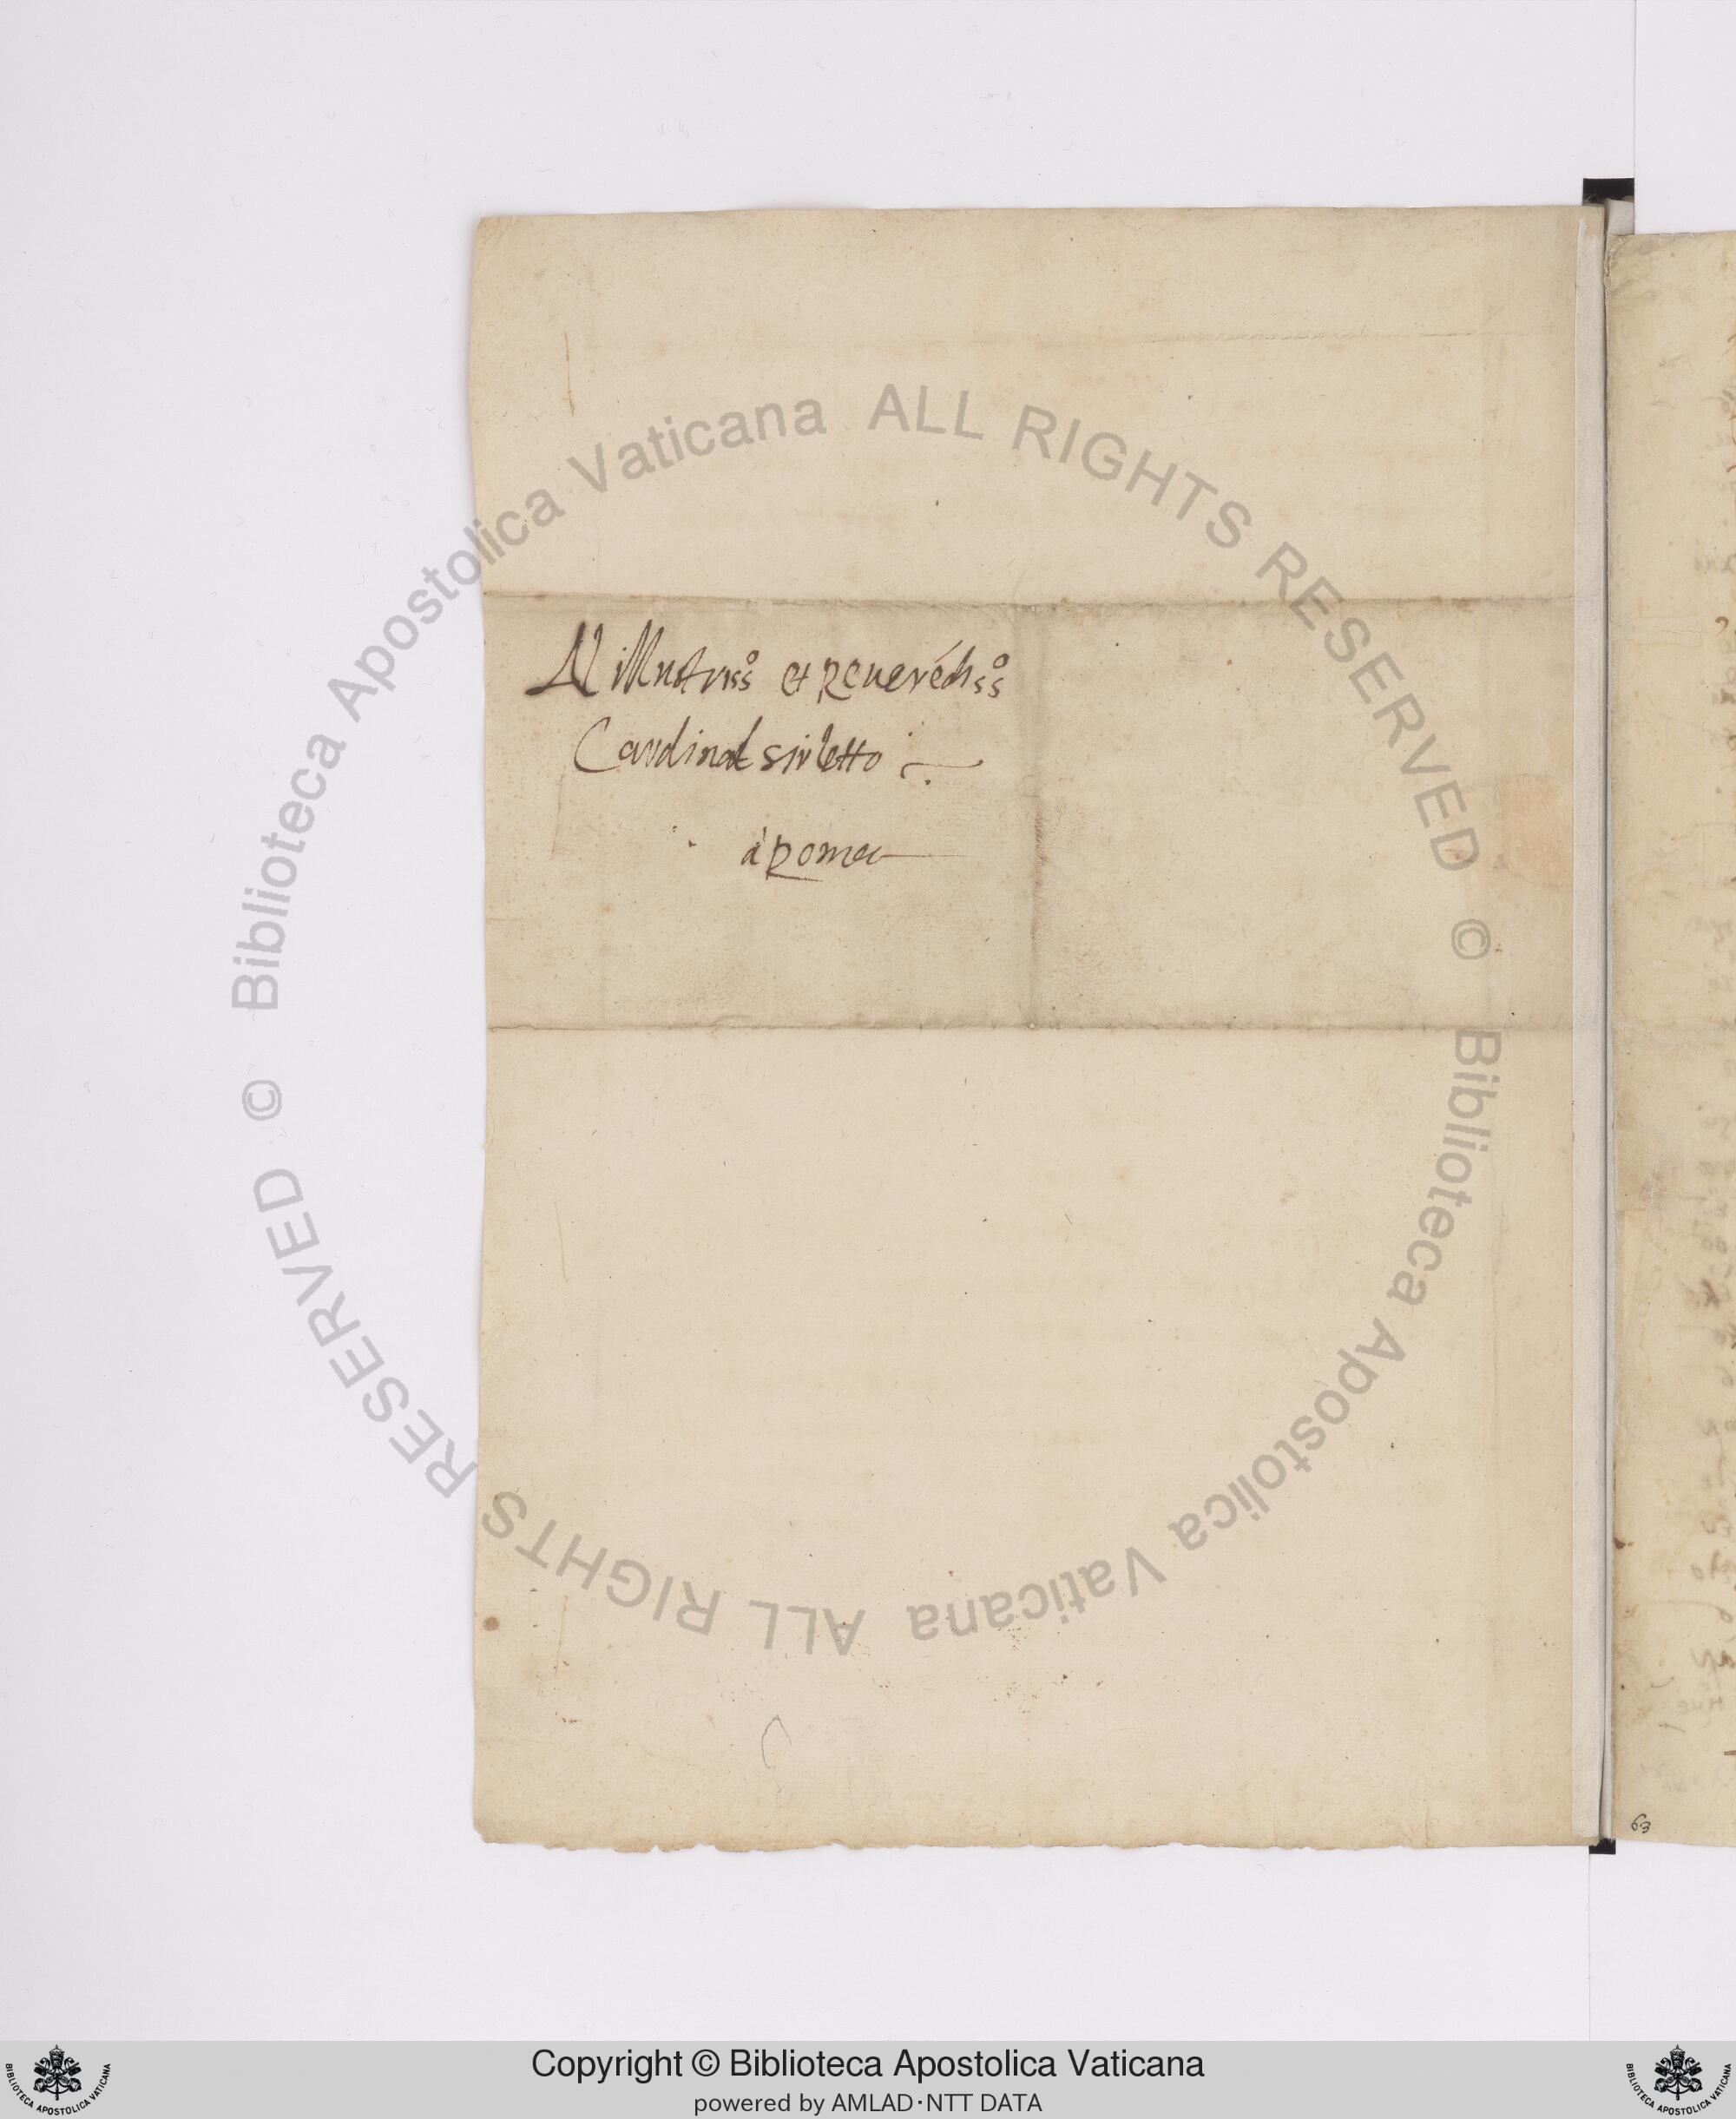 Al illustriss.o et Reuerediss.o
Cardinal sirletto
à Roma
63
© Biblioteca Apostolica Vaticana ALL RIGHTS RESERVED © Biblioteca Apostolica Vaticana ALL RIGHTS RESERVED
Copyright © Biblioteca Apostolica Vaticana
powered by AMLAD·NTT DATA
BIBLIOTECA APOSTOLICA VATICANA
BIBLIOTECA APOSTOLICA VATICANA